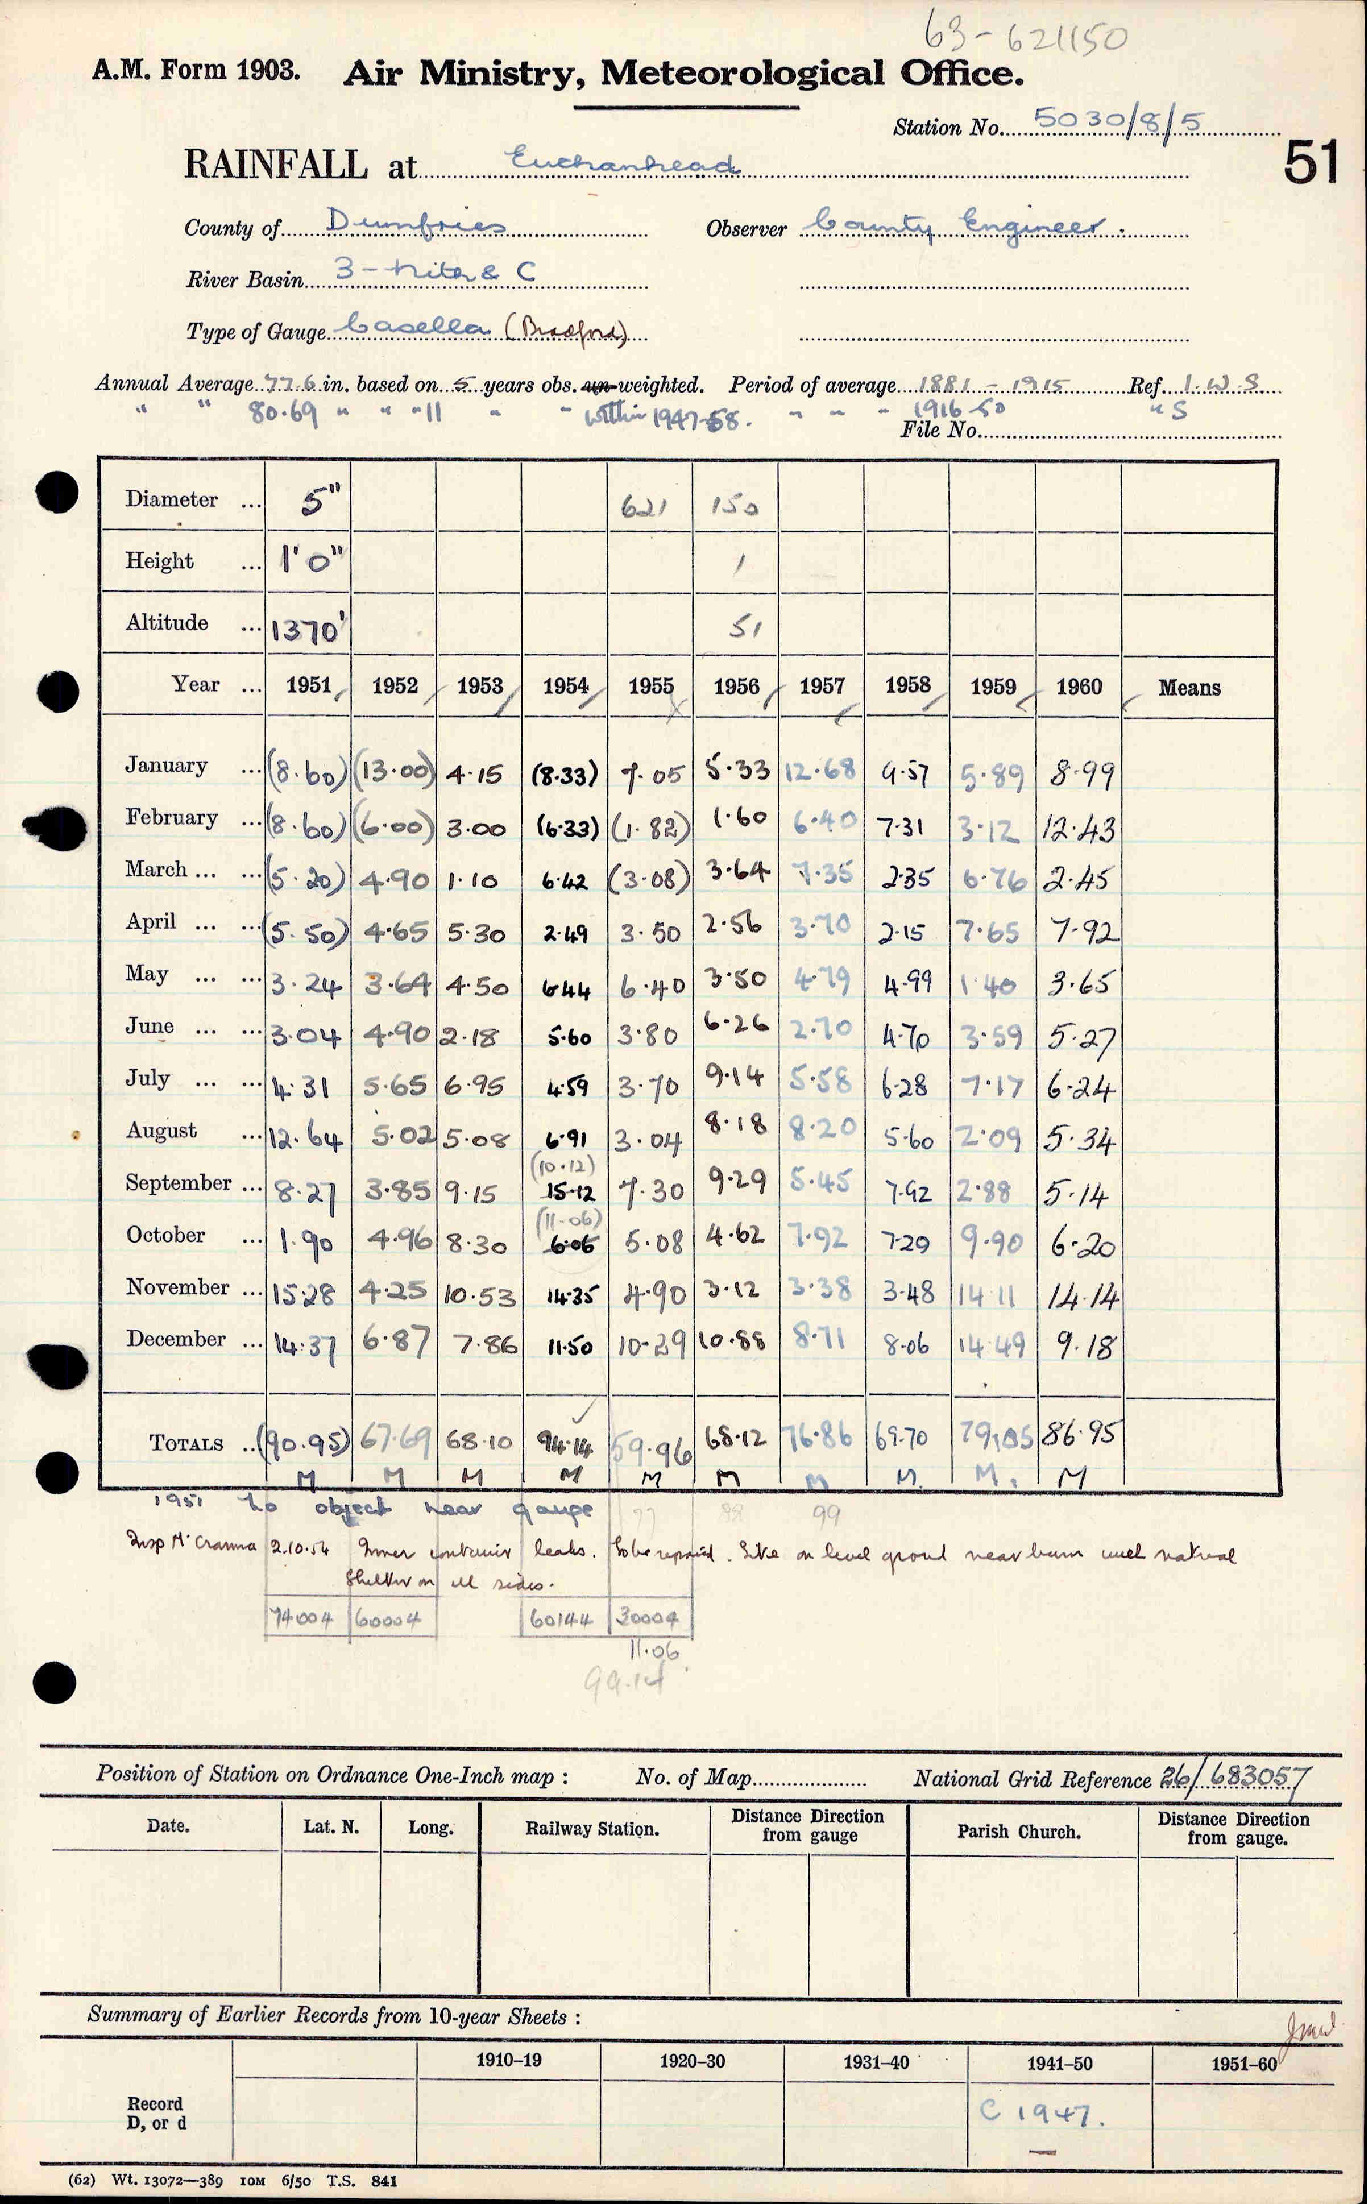 63-621150
A.M. Form 1903. Air Ministry, Meteorological Office.
Station No. 5030/8/5
51
RAINFALL at Euchanhead
County of Dumfries Observer County Engineer.
River Basin 3 - Nith & C
Type of Gauge Casella (Bradford)
Annual Average 77.6 in. based on 5 years obs. un-weighted. Period of average 1881 - 1915 Ref. I.W.S
" " 80.69 " " " 11 " " within 1947-58. " " " 1916-50 " S
File No.
Diameter ... 5" 621 150
Height ... 1' 0" 1
Altitude ... 1370' 51
Year ... 1951 1952 1953 1954 1955 1956 1957 1958 1959 1960 Means
January ... (8.60) (13.00) 4.15 (8.33) 7.05 5.33 12.68 9.57 5.89 8.99
February ... (8.60) (6.00) 3.00 (6.33) (1.82) 1.60 6.40 7.31 3.12 12.43
March ... ... (5.20) 4.90 1.10 6.42 (3.08) 3.64 7.35 2.35 6.76 2.45
April ... ... (5.50) 4.65 5.30 2.49 3.50 2.56 3.70 2.15 7.65 7.92
May ... ... 3.24 3.64 4.50 6.44 6.40 3.50 4.79 4.99 1.40 3.65
June ... ... 3.04 4.90 2.18 5.60 3.80 6.26 2.70 4.70 3.59 5.27
July ... ... 4.31 5.65 6.95 4.59 3.70 9.14 5.58 6.28 7.17 6.24
August ... 12.64 5.02 5.08 6.91 3.04 8.18 8.20 5.60 2.09 5.34
(10.12)
September ... 8.27 3.85 9.15 15.12 7.30 9.29 5.45 7.92 2.88 5.14
(11.06)
October ... 1.90 4.96 8.30 6.06 5.08 4.62 7.92 7.29 9.90 6.20
November ... 15.28 4.25 10.53 14.35 4.90 3.12 3.38 3.48 14.11 14.14
December ... 14.37 6.87 7.86 11.50 10.29 10.88 8.71 8.06 14.49 9.18
TOTALS .. (90.95) 67.69 68.10 94.14 59.96 68.12 76.86 69.70 79.05 86.95
M M M M M M M M. M. M
1951 No object near gauge 77 88 99
Insp McCranna 2.10.54 Inner container leaks. To be repaired. Site on level ground near burn with natural
shelter on all sides.
74004 60004 60144 30004
11.06
99.14
Position of Station on Ordnance One-Inch map : No. of Map National Grid Reference 26/683057
Date. Lat. N. Long. Railway Station. Distance from gauge Direction Parish Church. Distance from gauge. Direction
Summary of Earlier Records from 10-year Sheets :
1910–19 1920–30 1931–40 1941–50 1951–60
Record
D, or d
C 1947.
—
(62) Wt. 13072—389 10M 6/50 T.S. 841